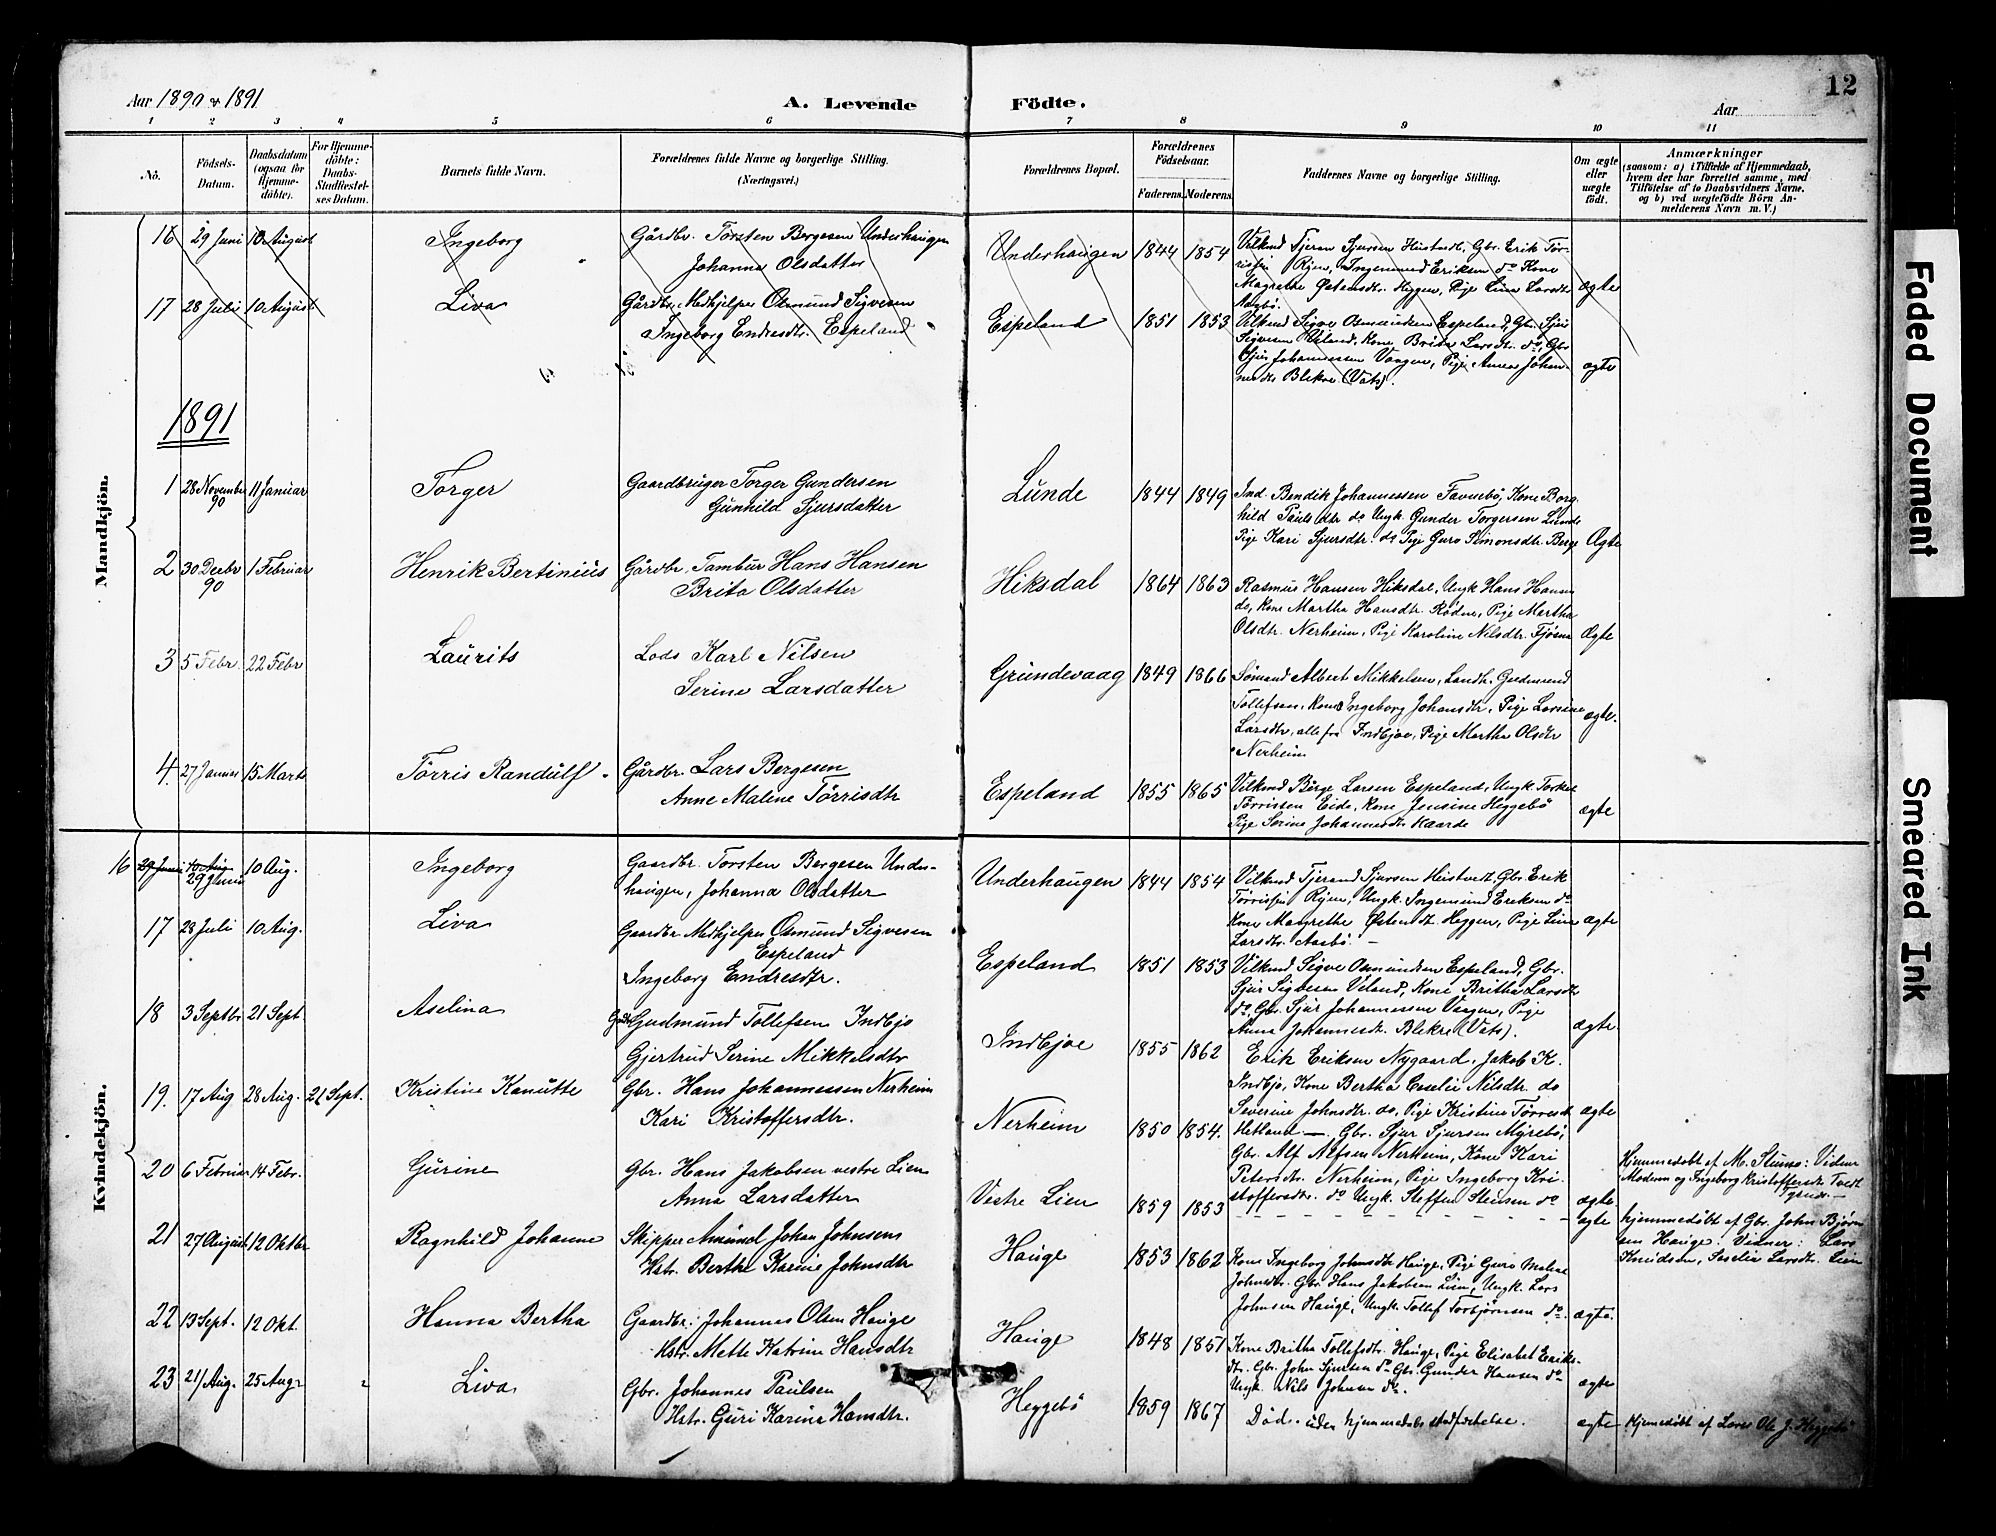 Aar 1890 & 1891
A. Levende Födte.
Aar
12
1 2 3 4 5 6 7 8 9 10 11
No.
Födsels-Datum.
Daabsdatum (ogsaa for Hjemme-döbte).
For Hjemme-döbte: Daabs-Stadfæstel-ses Datum.
Barnets fulde Navn.
Forældrenes fulde Navne og borgerlige Stilling. (Næringsvei.)
Forældrenes Bopæl.
Forældrenes Födselsaar.
Faderens. Moderens.
Faddernes Navne og borgerlige Stilling.
Om ægte eller uægte födt.
Anmærkninger
(saasom: a) i Tilfælde af Hjemmedaab, hvem der har forrettet samme, med Tilföielse af to Daabsvidners Navne, og b) ved uægtefödte Börn An-melderens Navn m. V.)
16 29 Juni 10 August Ingeborg Gårdbr. Torsten Bergesen Underhaugen
Johanna Olsdatter
Underhaugen 1844 1854 Vilknd Tjeran Sjursen Hustvedt, Gbr. Erik Tör-
rissen Rijen, Ingemund Eriksen do Kone
Magrethe Østensdtr. Heggen, Pige Lina Larsdtr
Aasbö. ægte
17 28 Juli 10 August Liva Gårdbr. Medhjelper Osmund Sigvesen
Ingeborg Endresdtr. Espeland
Espeland 1851 1853 Vilknd Sigve Osmundsen Espeland, Gbr. Sjur
Sigvesen Veland, Kone Britha Larsdtr. do, Gbr
Sjur Johannessen Vaagen, Pige Anna Johan-
nesdtr Blekre (Vats). ægte
1891
Mandkjön.
1 28 November 90 11 Januar Torger Gaardbruger Torger Gundersen
Gunhild Sjursdatter
Lunde 1844 1849 Ind. Bendik Johannessen Favnebö, Kone Borg-
hild Paulsdtr do Ungk. Gunder Torgersen Lunde
Pige Kari Sjursdtr. do Pige Guro Simonsdtr. Berge Ægte
2 30 Decbr 90 1 Februar Henrik Bertinius Gårdbr. Tambur Hans Hansen
Brita Olsdatter
Hiksdal 1864 1863 Rasmus Hansen Hiksdal, Ungk Hans Hansen
do, Kone Martha Hansdtr. Röden, Pige Martha
Olsdtr. Nerheim, Pige Karoline Nilsdtr. Fjösne Ægte
3 5 Febr. 22 Febr Laurits Lods Karl Nilsen
Serine Larsdatter
Grundevaag 1849 1866 Sömand Albert Mikkelsen, Landh. Gudmund
Tollefsen, Kone Ingeborg Johansdtr, Pige Larsine
Larsdtr, alle fra Indbjoe, Pige Martha Olsdtr
Nerheim ægte.
4. 27 Januar 15 Marts Törris Randulf. Gårdbr. Lars Bergesen
Anne Malene Törrisdtr
Espeland 1855 1865 Vilknd Börge Larsen Espeland, Ungk. Torkel
Törrissen Eide, Kone Jensine Heggebö
Pige Serine Johannesdtr Kaarde ægte
Kvindekjön.
16 29 Juni 10 Aug 29 Juni 10 Aug. Ingeborg Gaardbr. Torsten Bergesen Under-
haugen, Johanna Olsdatter
Underhaugen 1844 1854 Vilknd Tjerand Sjursen Hustvedt, Gbr. Erik
Törrissen Rijen, Ungk. Ingemund Eriksen do
Kone Margrethe Østensdtr. Heggen, Pige Lina
Larsdtr. Aasbö. — ægte
17 28 Juli 10 Aug. Liva Gaardbr Medhjelper Osmund Sigvesen
Espeland
Ingeborg Endresdtr.
Espeland 1851 1853 Vilknd Sigve Osmundsen Espeland, Gbr.
Sjur Sigvesen Veland, Kone Britha Larsdtr
do, Gbr. Sjur Johannessen Vaagen, Pige
Anna Johannesdtr. Blekre (Vats). ægte
18 3 Septbr 21 Sept Aselina Gudmund Tollefsen Indbjo
Gjertrud Serine Mikkelsdtr
Indbjoe 1855 1862 Erik Eriksen Nygaard, Jakob K.
Indbjo, Kone Bertha Cecelie Nilsdtr. do
Severine Johnsdtr. do, Pige Kristine Törresdtr
Hetland — ægte
19. 17 Aug 28 Aug. 21 Sept. Kristine Kanutte Gbr. Hans Johannessen Nerheim
Kari Kristoffersdtr.
Nerheim 1850 1854. Gbr. Sjur Sjursen Myrebö,
Gbr. Alf Alfsen Nerheim, Kone Kari
Petersdtr. Nerheim, Pige Ingeborg Kri-
stoffersdtr. do Ungk. Steffen Stensen do ægte
Hjemmedöbt af M. Stumo: Vidner
Moderen og Ingeborg Kristoffersdtr Tvedt
20 6 Februar 14 Febr. Gurine Gbr. Hans Jakobsen vestre Lien
Anna Larsdatter
Vestre Lien 1859 1853 - - - - - - - - ægte
hjemmedöbt af Gbr. John Björn
sen Hauge: Vidner: Lars
Knudsen, Seselie Larsdtr. Lien
21 27 August 12 Oktbr Ragnhild Johanne Skipper Amund Johan Johnsens
Hstr. Berthe Karine Johnsdtr
Hauge 1853 1862 Kone Ingeborg Johnsdtr Hauge, Pige Guro Malene
Johnsdtr. Gbr. Hans Jakobsen Lien, Ungk. Lars
Johnsen Hauge, Ungk. Tollef Torbjörnsen do. ægte.
22 13 Sept. 12 Okt. Hanna Bertha Gaardbr. Johannes Olsen Hauge
Hstr. Mette Katrine Hansdtr
Hauge 1848 1851 Kone Britha Tollefsdtr. Hauge, Pige Elisabet Eriks-
dtr. Gbr. John Sjursen do Gbr. Gunder Hansen do
Ungk. Nils Johnsen do. ægte
23 21/Aug. 25 Aug. Liva Gbr. Johannes Paulsen
Hstr. Guri Karine Hansdtr.
Heggebö 1859 1867 Död. uden hjemmedaabs stadfæstelse. ægte Hjemmedöbt af Lærer Ole J. Heggebö
Faded Document
Smeared Ink